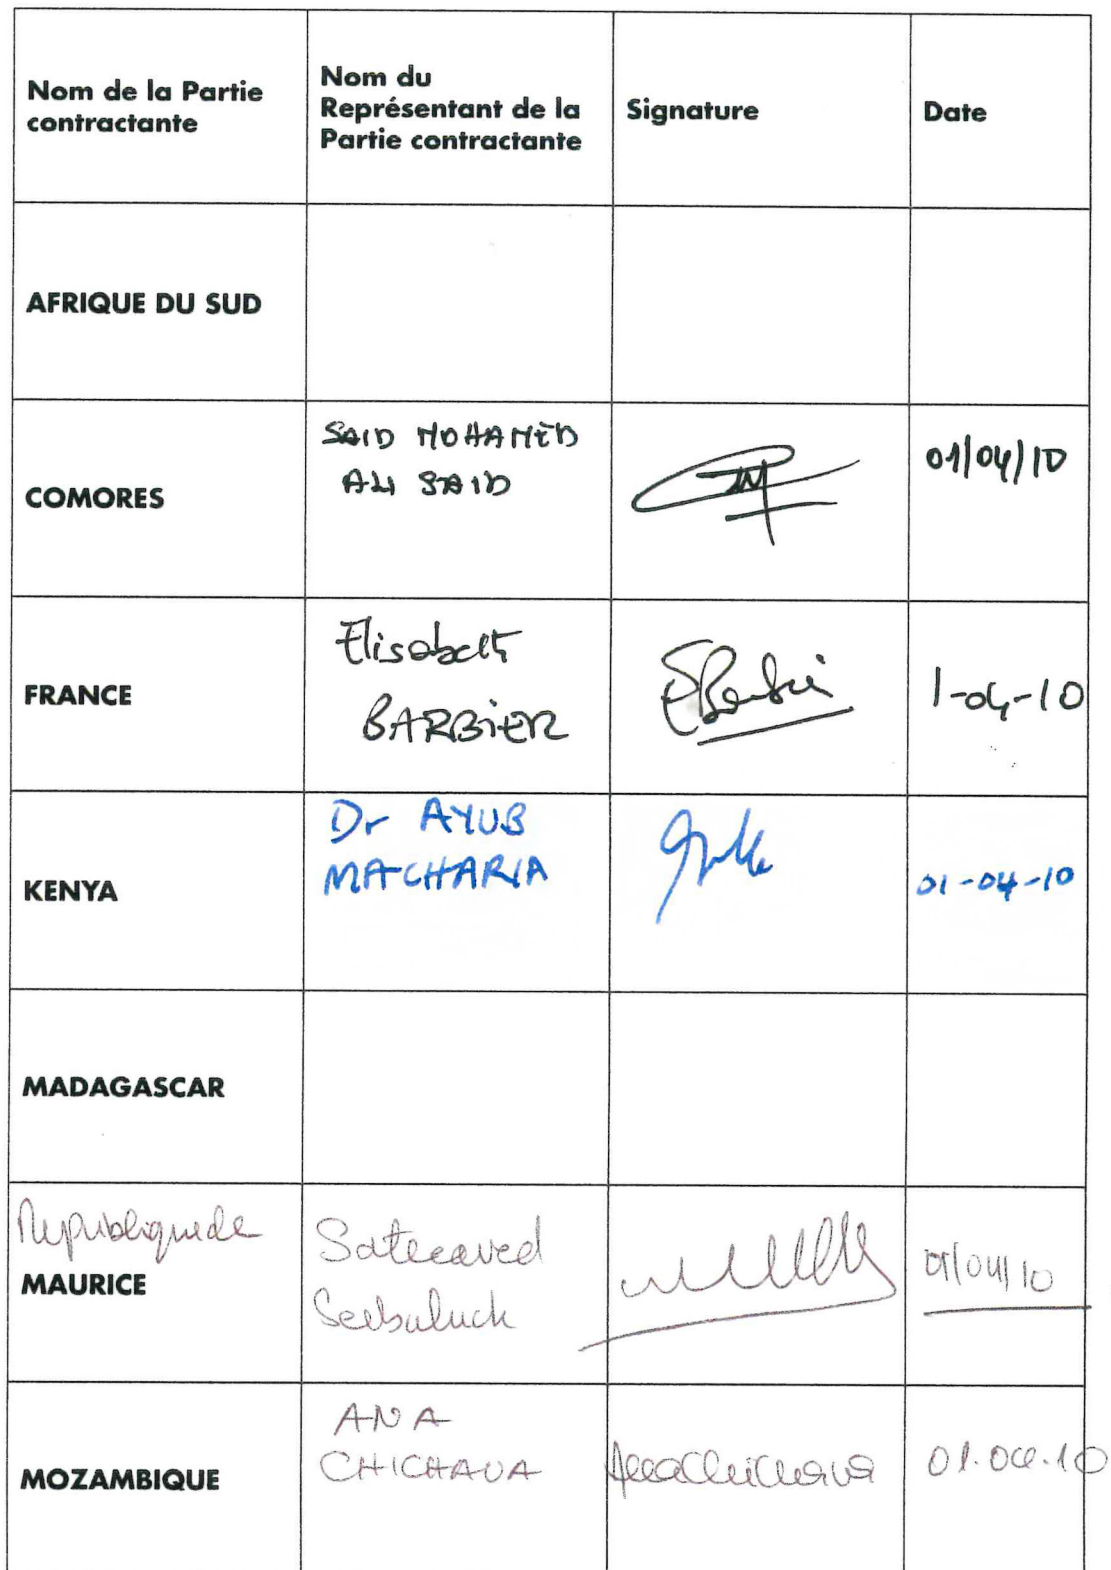 Nom de la Partie
contractante
Nom du
Représentant de la
Partie contractante
Signature
Date
AFRIQUE DU SUD
COMORES
SAID MOHAMED
ALI SAID
01/04/10
FRANCE
Elisabeth
BARBIER
EBarbier
1-04-10
KENYA
Dr AYUB
MACHARIA
01-04-10
MADAGASCAR
République de
MAURICE
Sateeaved
Seebaluck
01/04/10
MOZAMBIQUE
ANA
CHICHAVA
AnaChichava
01.04.10